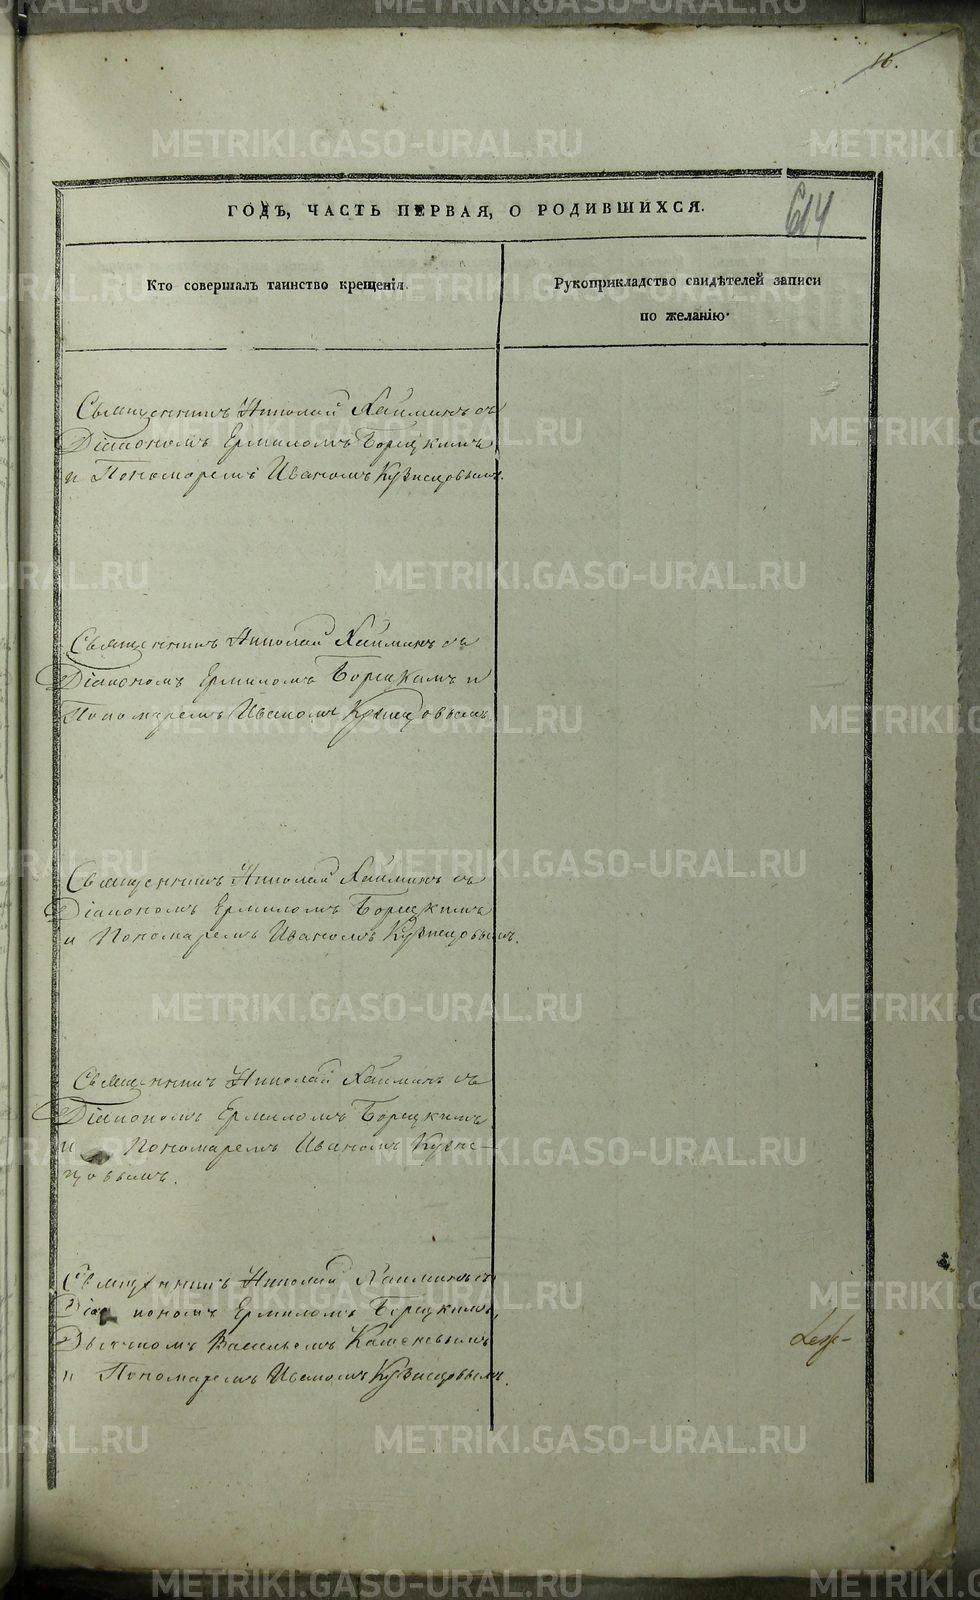 16.
614
ГОДЪ, ЧАСТЬ ПЕРВАЯ, О РОДИВШИХСЯ.
Кто совершалъ таинство крещенія.
Рукоприкладство свидѣтелей записи
по желанію.
Священникъ Николай Хайминъ съ
Діакономъ Ермиломъ Борецкимъ
и Пономаремъ Иваномъ Кузнецовымъ.
Священникъ Николай Хайминъ съ
Діакономъ Ермиломъ Борецкимъ и
Пономаремъ Иваномъ Кузнецовымъ
Священникъ Николай Хайминъ съ
Діакономъ Ермиломъ Борецкимъ
и Пономаремъ Иваномъ Кузнецовымъ.
Священникъ Николай Хайминъ съ
Діакономъ Ермиломъ Борецкимъ
и Пономаремъ Иваномъ Кузне-
цовымъ.
Священникъ Николай Хайминъ съ
Діакономъ Ермиломъ Борецкимъ,
Дьячкомъ Васильемъ
и Пономаремъ Иваномъ Кузнецовымъ.
METRIKI.GASO-URAL.RU